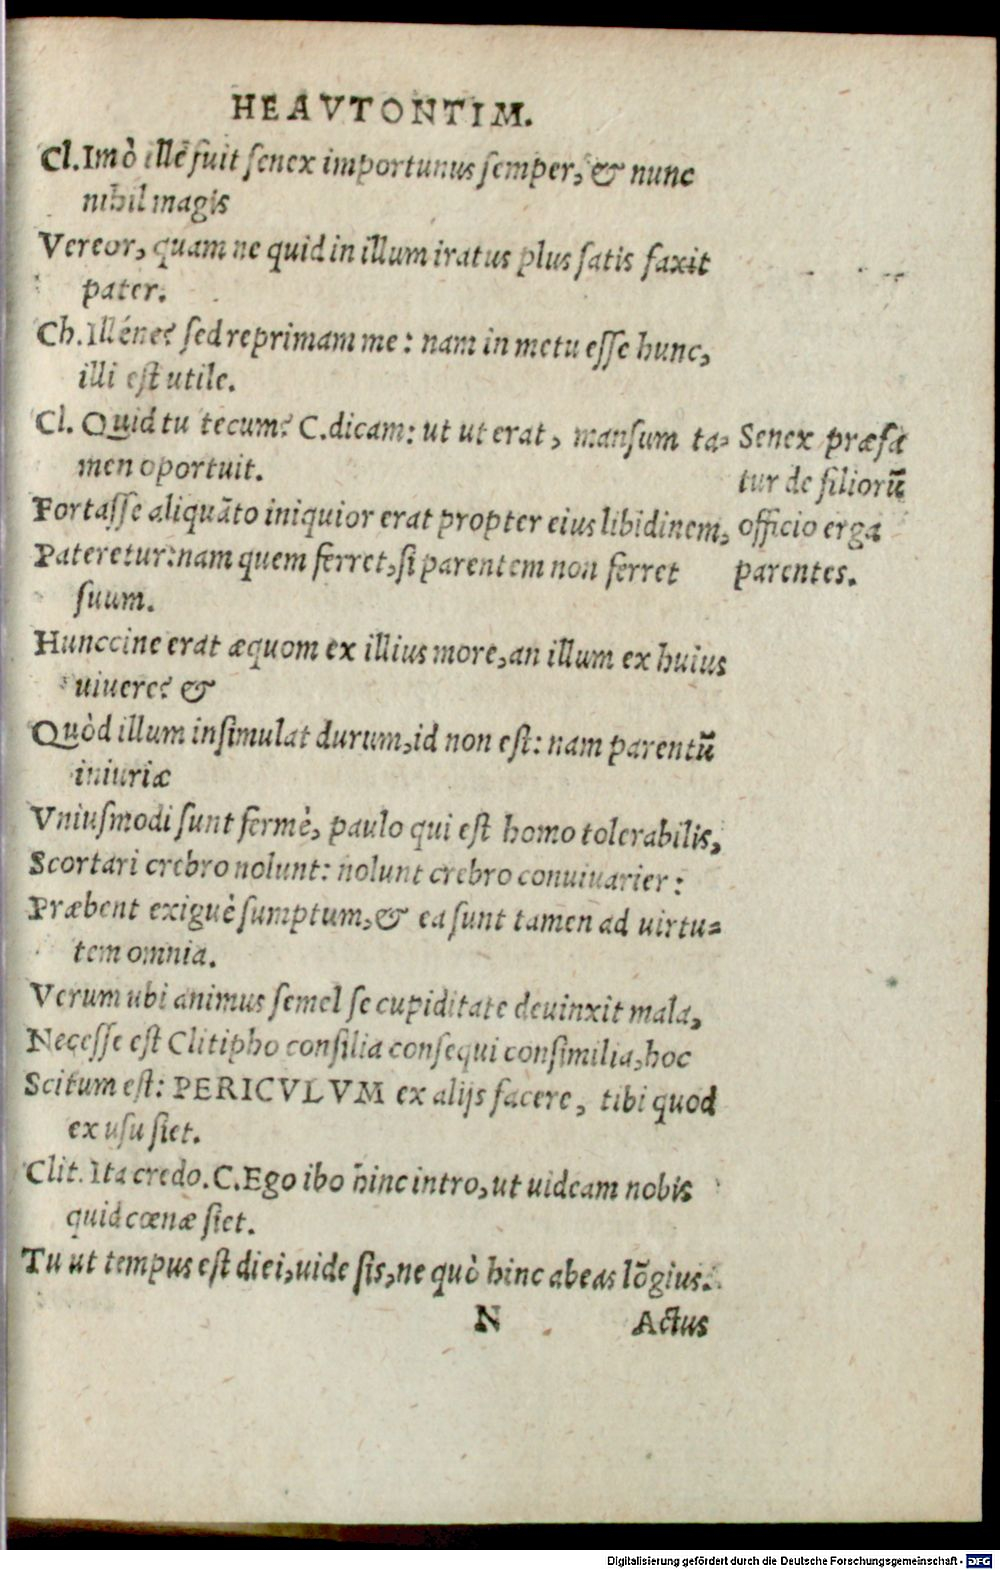 HEAVTONTIM.
Cl. Imò ille fuit senex importunus semper, & nunc
nihil magis
Vereor, quam ne quid in illum iratus plus satis faxit
pater.
Ch. Illéne? sed reprimam me: nam in metu esse hunc,
illi est utile.
Cl. Quid tu tecum? C. dicam: ut ut erat, mansum ta-
men oportuit.
Fortasse aliquāto iniquior erat propter eius libidinem,
Pateretur: nam quem ferret, si parentem non ferret
suum.
Hunccine erat æquom ex illius more, an illum ex huius
uiuere? &
Quòd illum insimulat durum, id non est: nam parentū
iniuriæ
Vniusmodi sunt fermè, paulo qui est homo tolerabilis,
Scortari crebro nolunt: nolunt crebro conuiuarier:
Præbent exiguè sumptum, & ea sunt tamen ad uirtu-
tem omnia.
Verum ubi animus semel se cupiditate deuinxit mala,
Necesse est Clitipho consilia consequi consimilia, hoc
Scitum est: PERICVLVM ex alijs facere, tibi quod
ex usu siet.
Clit. Ita credo. C. Ego ibo hinc intro, ut uideam nobis
quid cœnæ siet.
Tu ut tempus est diei, uide sis, ne quò hinc abeas lōgius.
N Actus
Senex præfa
tur de filiorū
officio erga
parentes.
Digitalisierung gefördert durch die Deutsche Forschungsgemeinschaft - DFG